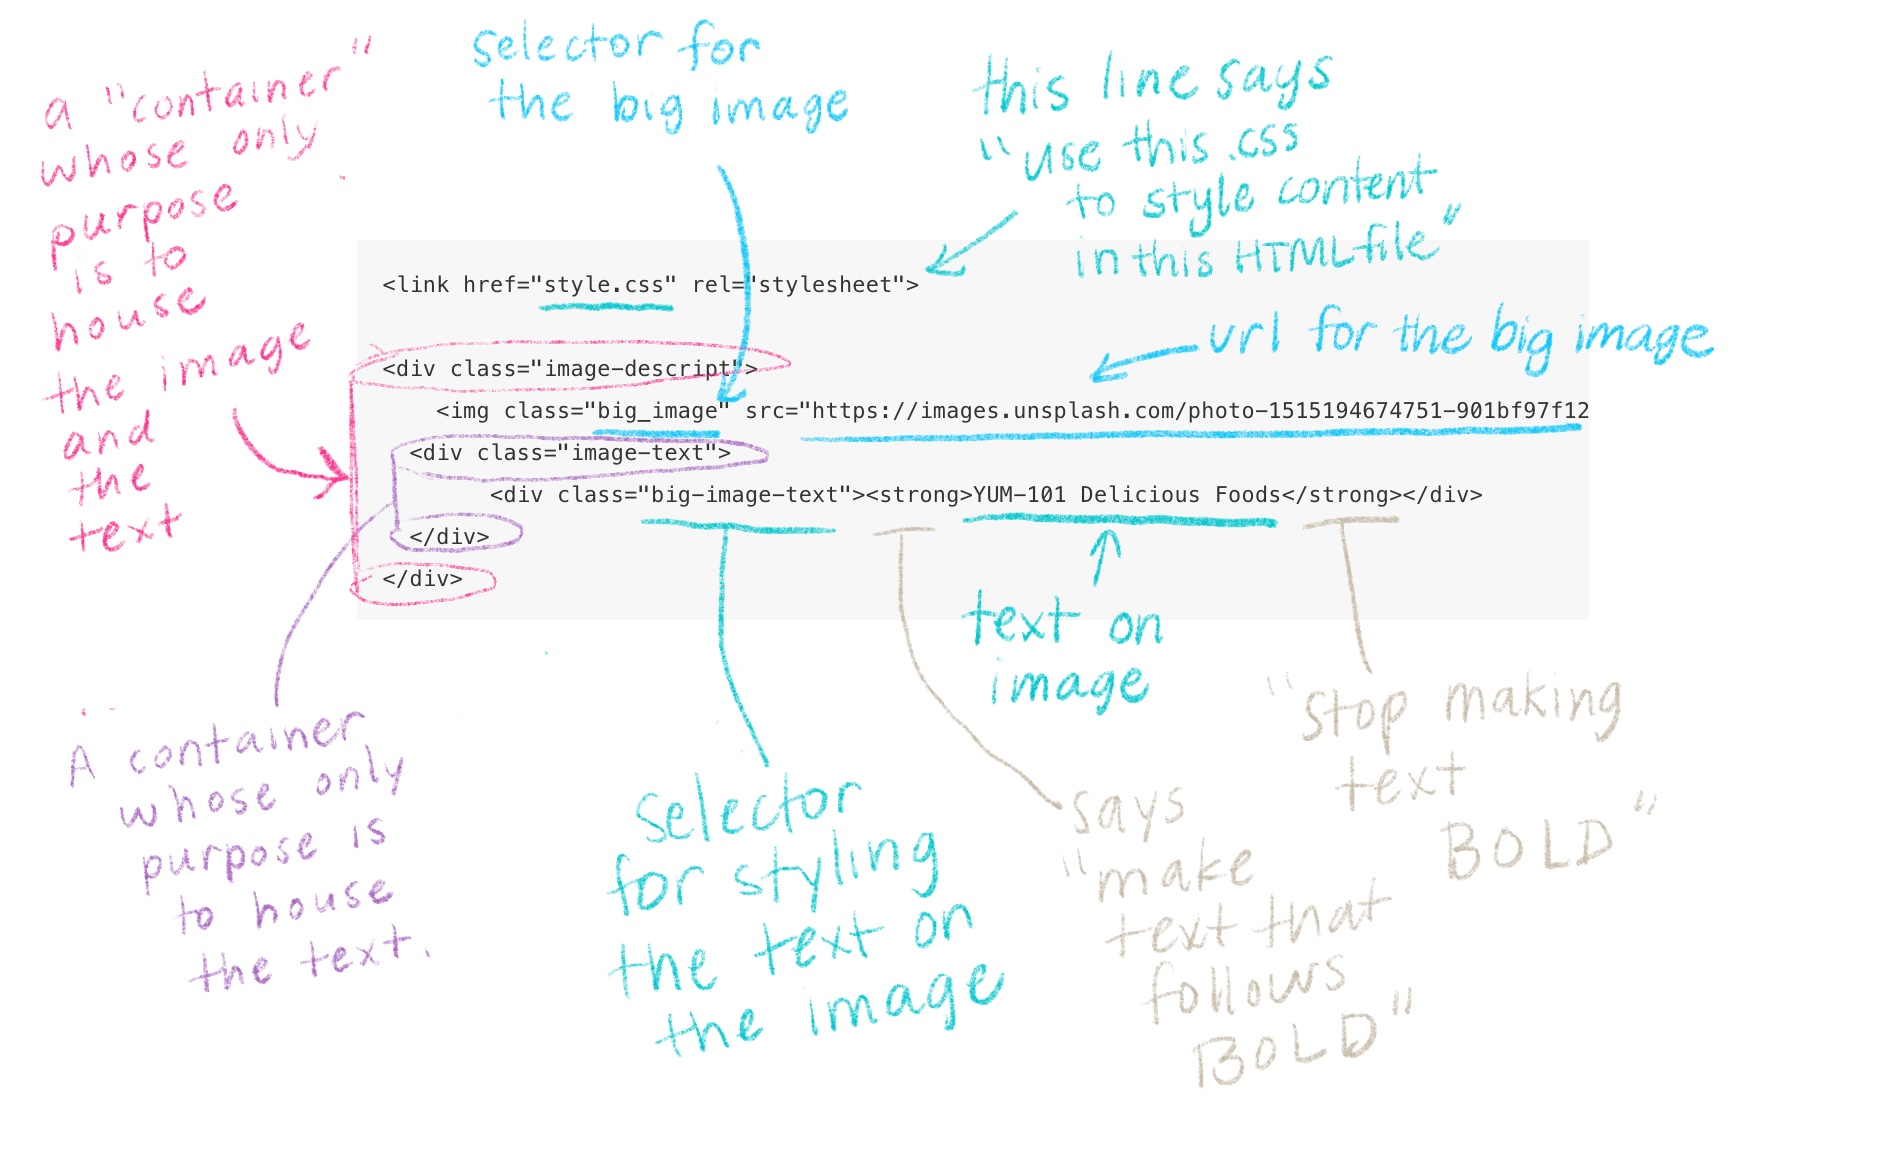 a "container"
whose only
purpose
is to
house
the image
and
the
text
selector for
the big image
this line says
"use this .css
to style content
in this HTML file"
<link href="style.css" rel="stylesheet">
url for the big image
<div class="image-descript">
<img class="big_image" src="https://images.unsplash.com/photo-1515194674751-901bf97f12
<div class="image-text">
<div class="big-image-text"><strong>YUM-101 Delicious Foods</strong></div>
</div>
</div>
text on
image
A container
whose only
purpose is
to house
the text.
selector
for styling
the text on
the image
says
"make
text that
follows
BOLD"
"stop making
text
BOLD"